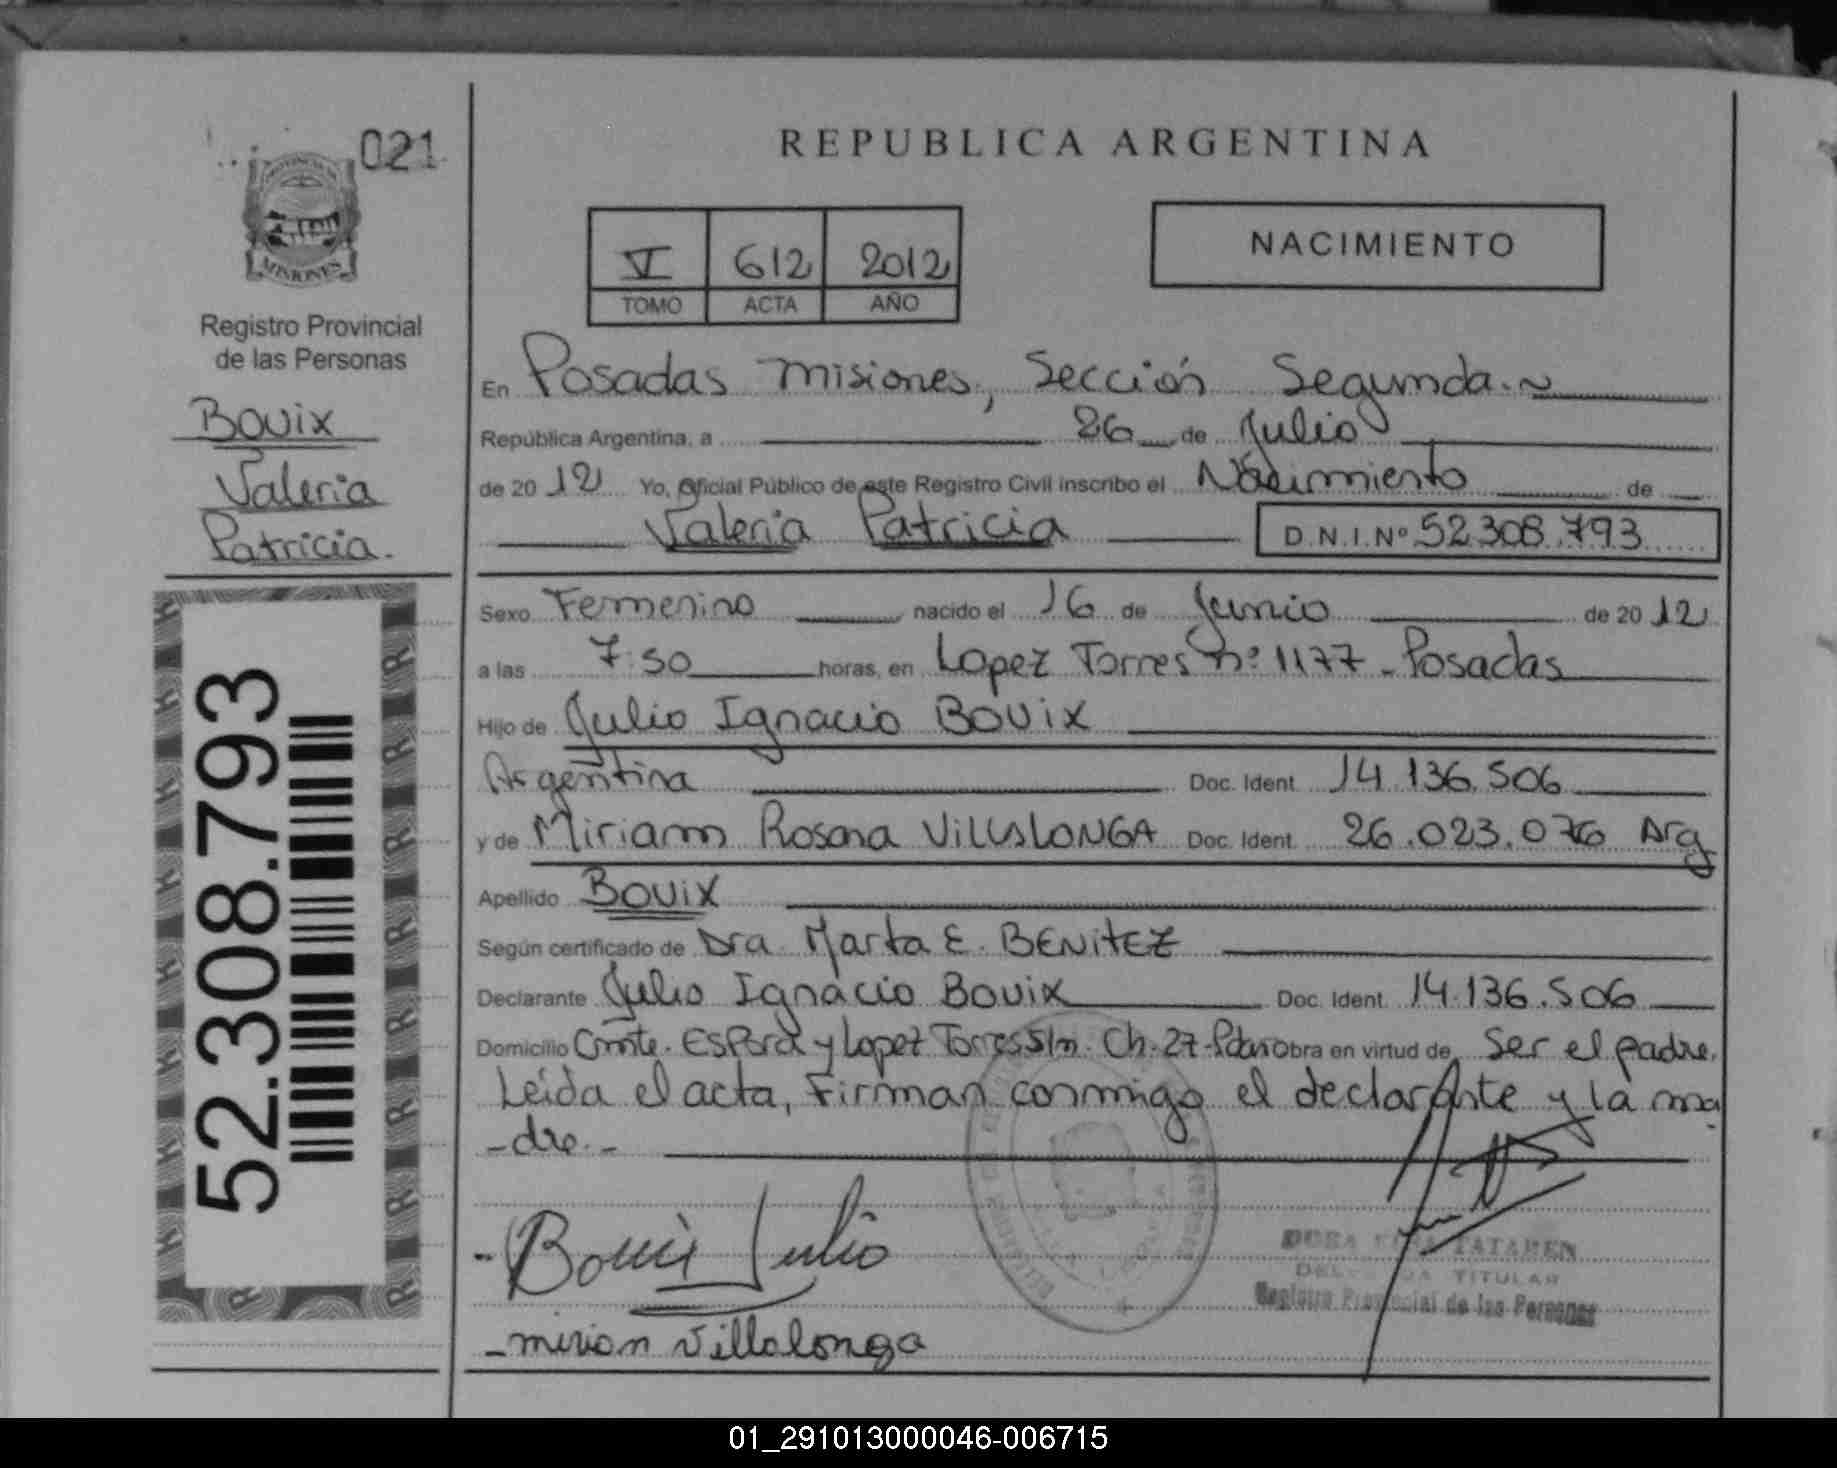 021
PROVINCIA DE
MISIONES
Registro Provincial
de las Personas
Bouix
Valeria
Patricia.
52.308.793
REPUBLICA ARGENTINA
V 612 2012
TOMO ACTA AÑO
NACIMIENTO
En Posadas Misiones, Sección Segunda.~
República Argentina, a 26 de Julio
de 2012 Yo, Oficial Público de este Registro Civil inscribo el Nacimiento de
Valeria Patricia D.N.I.Nº 52.308.793
Sexo Femenino nacido el 16 de Junio de 2012
a las 7:50 horas, en Lopez Torres nº 1177 - Posadas
Hijo de Julio Ignacio Bouix
Argentina Doc. Ident. 14.136.506
y de Miriam Rosana Villalonga Doc. Ident. 26.023.076 Arg
Apellido Bouix
Según certificado de Dra. Marta E. BENITEZ
Declarante Julio Ignacio Bouix Doc. Ident. 14.136.506
Domicilio Cmte. Espora y Lopez Torres s/n. Ch. 27- obra en virtud de Ser el padre.
Leida el acta, Firman conmigo el declarante y la ma
-dre.-
- Bouix Julio
TATAREN
TITULAR
Registro Provincial de las Personas
- mirian Villalonga
01_291013000046-006715